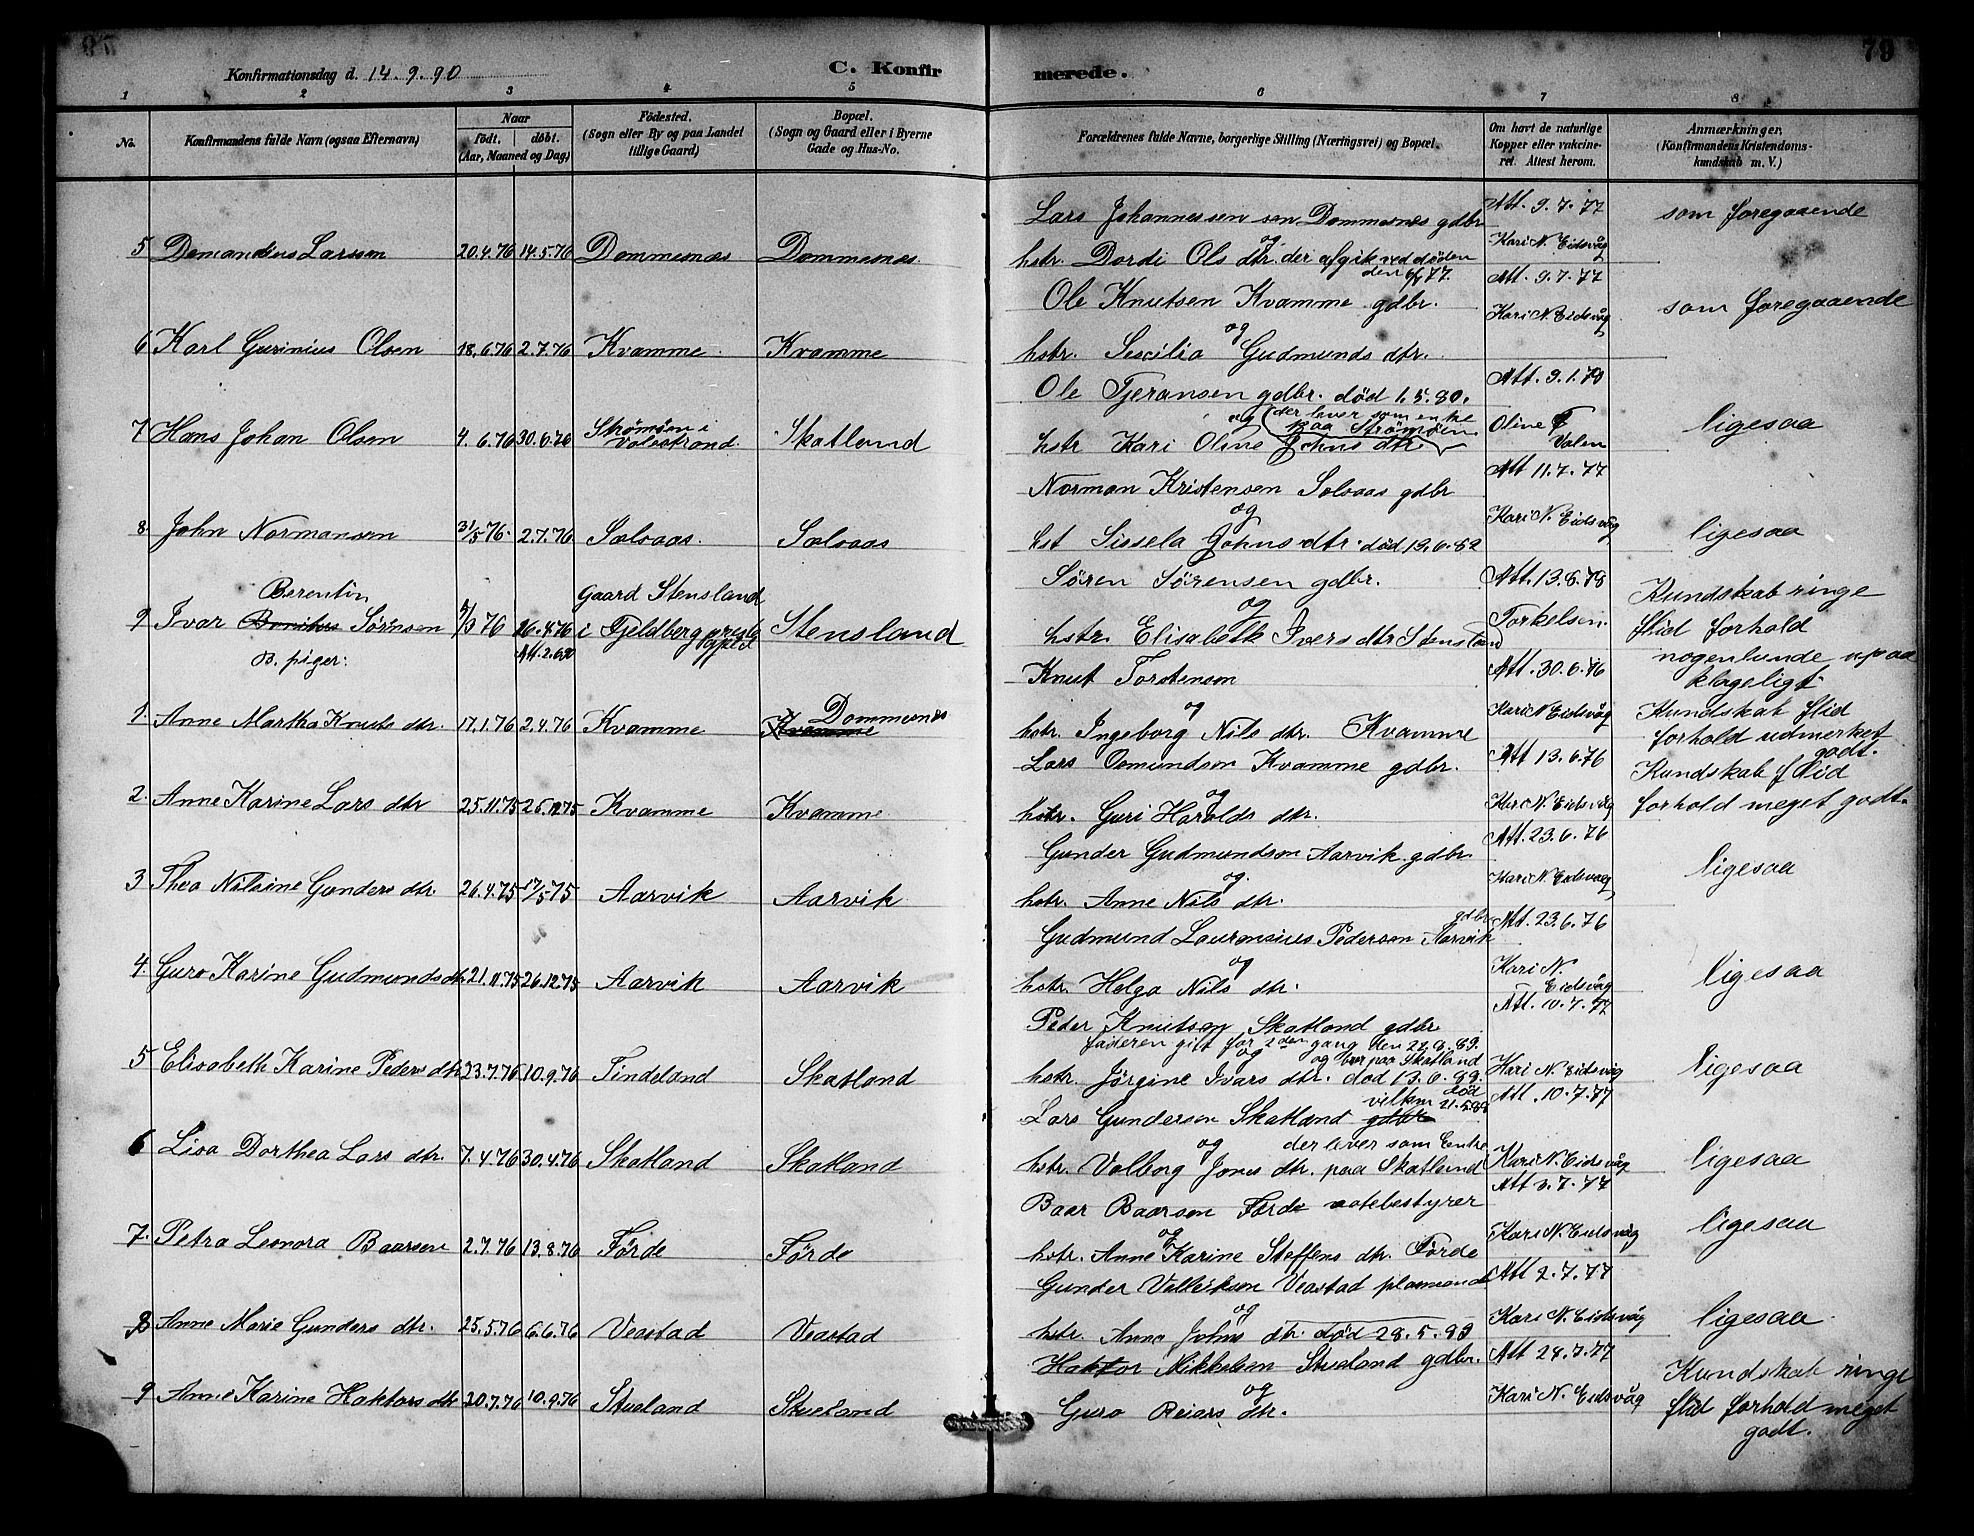 79
Konfirmationsdag d. 14.9.90
C. Konfirmerede.
1 2 3 4 5 6 7 8
No.
Konfirmandens fulde Navn (ogsaa Efternavn)
Naar
födt. döbt.
(Aar, Maaned og Dag)
Födested.
(Sogn eller By og paa Landet
tillige Gaard)
Bopæl.
(Sogn og Gaard eller i Byerne
Gade og Hus-No.
Forældrenes fulde Navne, borgerlige Stilling (Næringsvei) og Bopæl.
Om havt de naturlige
Kopper eller vakcine-
ret. Attest herom.
Anmærkninger,
(Konfirmandens Kristendoms-
kundskab m. V.)
Lars Johannessen Dommesnes gdbr Att. 9.7.77 som foregaaende
5 Larsen 20.4.76 14.5.76 Dommesnes Dommesnes
og
hstr. Dordi Ols dtr. der afgik ved döden Kari N. Eidsvåg
den 77.
Ole Knutsen Kvamme gdbr. Att. 9.7.77 som foregaaende
6 Karl Gurinius Olsen 18.6.76 2.7.76 Kvamme Kvamme
og
hstr. Sescilia Gudmunds dtr. Kari N. Eidsvåg
Ole Tjeransen gdbr. död 1.5.80. Att. 9.1.78
7 Hans Johan Olsen 4.6.76 30.6.76 Strømøen i Valestrand Skatland
og (der lever som enke
paa Strømöen)
hstr Kari Oline Johns dtr Oline Valen ligesaa
Norman Kristensen Solvaas gdbr Att 11.7.77
8. John Normansen 31/5 76. 2.7.76 Solvaas. Solvaas
og
hst Sissela Johns dtr. död 13.6.82 Kari N. Eidsvåg ligesaa
Sören Sörensen gdbr. Att. 13.8.78
Berentin
9 Ivar Sörensen 76 26.4.76 Gaard Stensland
i Fjeldberg Stensland
og
hstr. Elisabeth Ivers dtr Stensland Torkelsen.
Kundskab ringe
flid forhold
nogenlunde upaa
klageligt
B. piger:
Knut Torstensen Att. 30.6.76
1. Anne Martha Knuts dtr. 17.1.76 2.4.76 Kvamme Dommesnes
Kvamme
og
hstr. Ingeborg Nils dtr. Kvamme Kari N Eidsvåg
Kundskab flid
forhold udmerket
godt.
Lars Osmundsen Kvamme gdbr. Att 13.6.76
2. Anne Karine Lars dtr 25.11.75 26.12.75 Kvamme Kvamme
og
hstr. Guri Haralds dtr. Kari N. Eidsvåg
Kundskab flid
forhold meget godt.
Gunder Gudmundsen Aarvik. gdbr. Att. 23.6.76
3 Thea Nilsine Gunders dtr. 26.4.75 17/5 75 Aarvik Aarvik.
og.
hstr. Anne Nils dtr. Kari N. Eidsvaag ligesaa
gdbr
Gudmund Laurensius Pedersen Aarvik Att. 23.6.76
4. Guro Karine Gudmunds dtr 21.11.75 26.12.75 Aarvik Aarvik
og
hstr. Helga Nils dtr. Kari N.
Eidsvåg ligesaa
Peder Knutsen Skatland gdbr Att. 10.7.77
faderen gift for 2den gang den 22.8.89.
og og bor paa Skatland
5 Elisabeth Karine Peders dtr 23.7.76 10.9.76 Tindeland Skatland
hstr. Jörgine Ivars dtr. död 13.6.89. Kari N. Eidsvåg ligesaa
vilkm död
21.5.88
Lars Gundersen Skatland gdbr Att. 10.7.77
6 Lisa Dorthea Lars dtr. 7.4.76 30.4.76 Skatland Skatland
og der lever som Enke
hstr. Valborg Jons dtr. paa Skatland Kari N. Eidsvåg ligesaa
Baar Baarsen Förde Att 3.7.77
7. Petra Leonora Baarsen 2.7.76 13.8.76 Förde Förde
og
hstr. Anne Karine Steffens dtr. Förde Kari N. Eidsvåg ligesaa
Gunder Veastad Att 2.7.77
8 Anne Marie Gunders dtr. 25.5.76 6.6.76 Veastad Veastad
og
hstr. Anna Johns dtr. död 28.5.89 Kari N. Eidsvåg ligesaa
Haktor Mikkelsen Stueland gdbr. Att 24.7.77
9 Anne Karine Haktors dtr 20.7.76 10.9.76 Stueland Stueland
og
Guro Reiars dtr. Kari N. Eidsvåg
Kundskab ringe
flid forhold meget
godt.